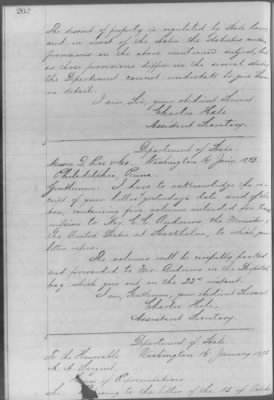 202
The descent of property is regulated by State laws
and in most of the States the Statutes make
provisions in the above mentioned subject, but
as those provisions differ in the several States
the Department cannot undertake to give them
in detail.
I am, Sir, your obedient Servant
Charles Hale
Assistant Secretary.
Department of State
Messrs. D. Rice & Co. Washington 16 Jany. 1873.
Philadelphia, Penna
Gentlemen: I have to acknowledge the re-
ceipt of your letter yesterday's date and of the
box containing five volumes intended for trans-
mission to Hon. C. C. Andrews, the Minister of
the United States at Stockholm, to which your
letter refers.
The volumes will be carefully packed
and forwarded to Mr. Andrews in the Despatch
bag which goes out on the 22d instant.
I am, Gentlemen, your obedient Servant
Charles Hale
Assistant Secretary.
Department of State
To the Honorable Washington 16 January 1873
A. A. Sargent,
of Representatives
Sir to the letter of the 15 of October